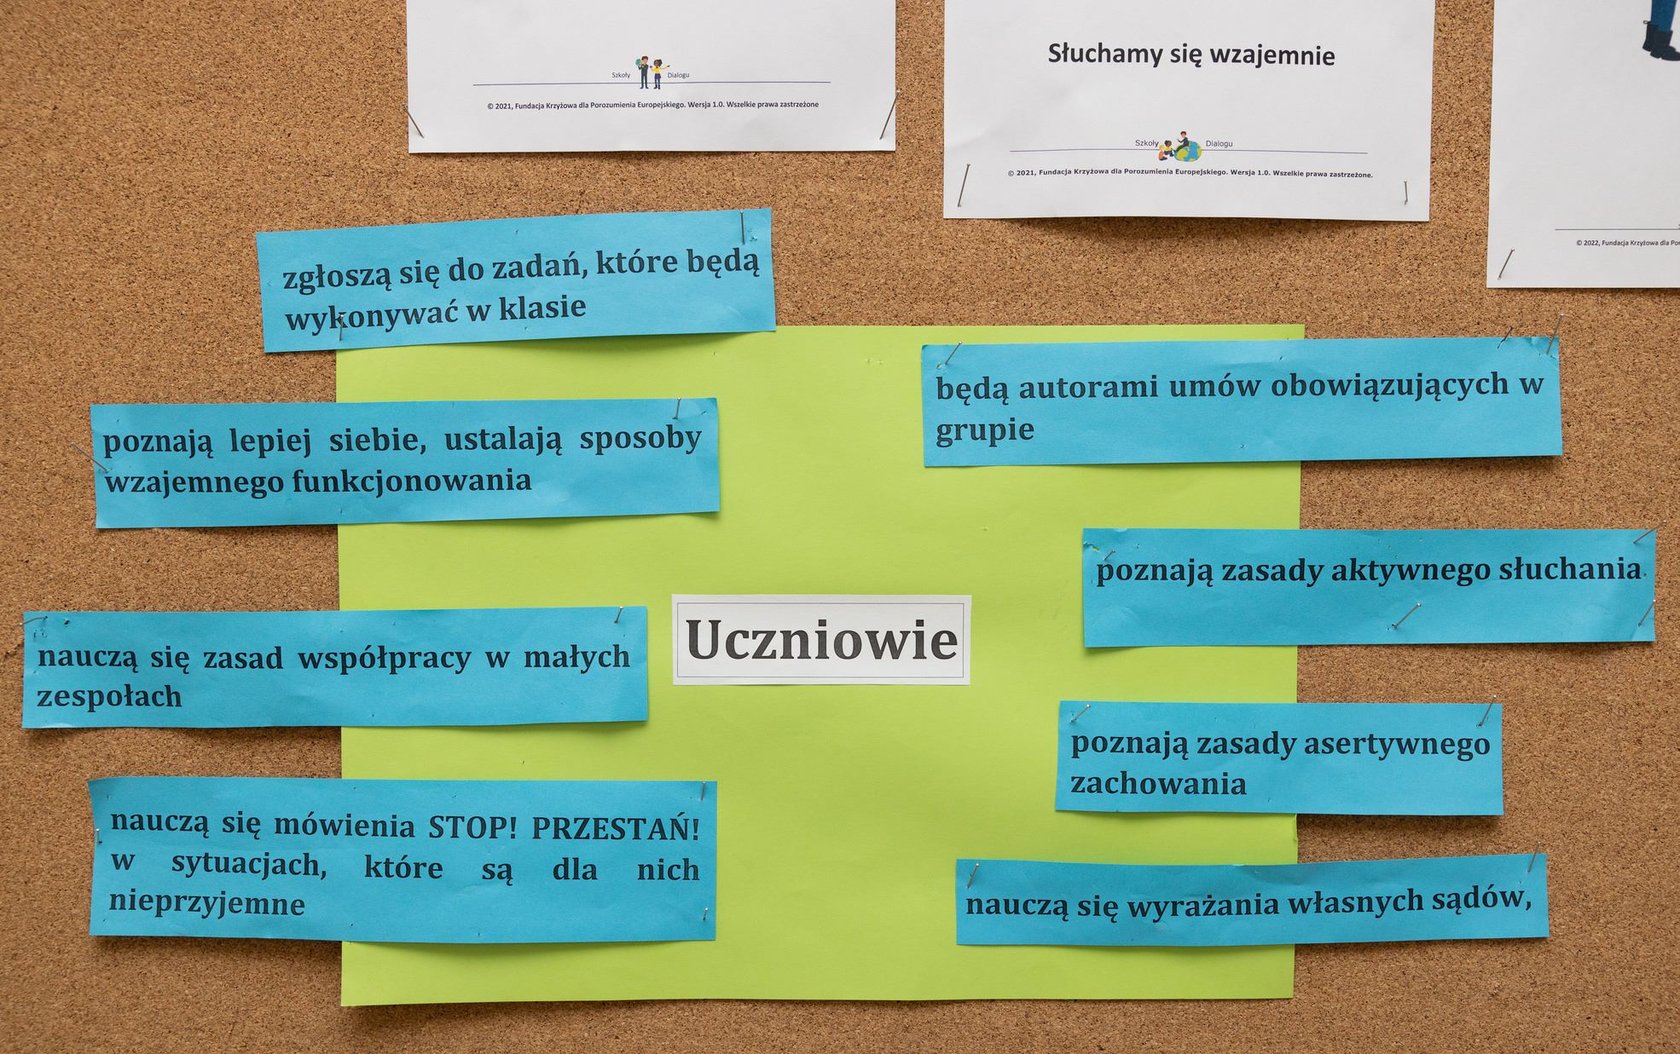 Szkoły Dialogu
© 2021, Fundacja Krzyżowa dla Porozumienia Europejskiego. Wersja 1.0. Wszelkie prawa zastrzeżone
Słuchamy się wzajemnie
Szkoły Dialogu
© 2021, Fundacja Krzyżowa dla Porozumienia Europejskiego. Wersja 1.0. Wszelkie prawa zastrzeżone.
© 2022, Fundacja Krzyżowa dla Po
zgłoszą się do zadań, które będą
wykonywać w klasie
poznają lepiej siebie, ustalają sposoby
wzajemnego funkcjonowania
nauczą się zasad współpracy w małych
zespołach
nauczą się mówienia STOP! PRZESTAŃ!
w sytuacjach, które są dla nich
nieprzyjemne
Uczniowie
będą autorami umów obowiązujących w
grupie
poznają zasady aktywnego słuchania
poznają zasady asertywnego
zachowania
nauczą się wyrażania własnych sądów,